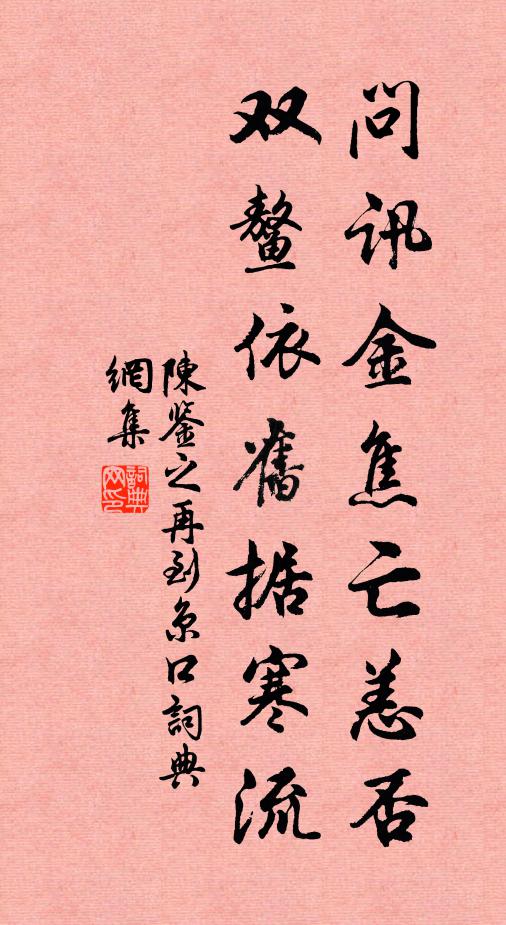 问讯金焦亡恙否
双鳌依舊据寒流
陳鉴之再到京口詞典
網集
詞典
网印